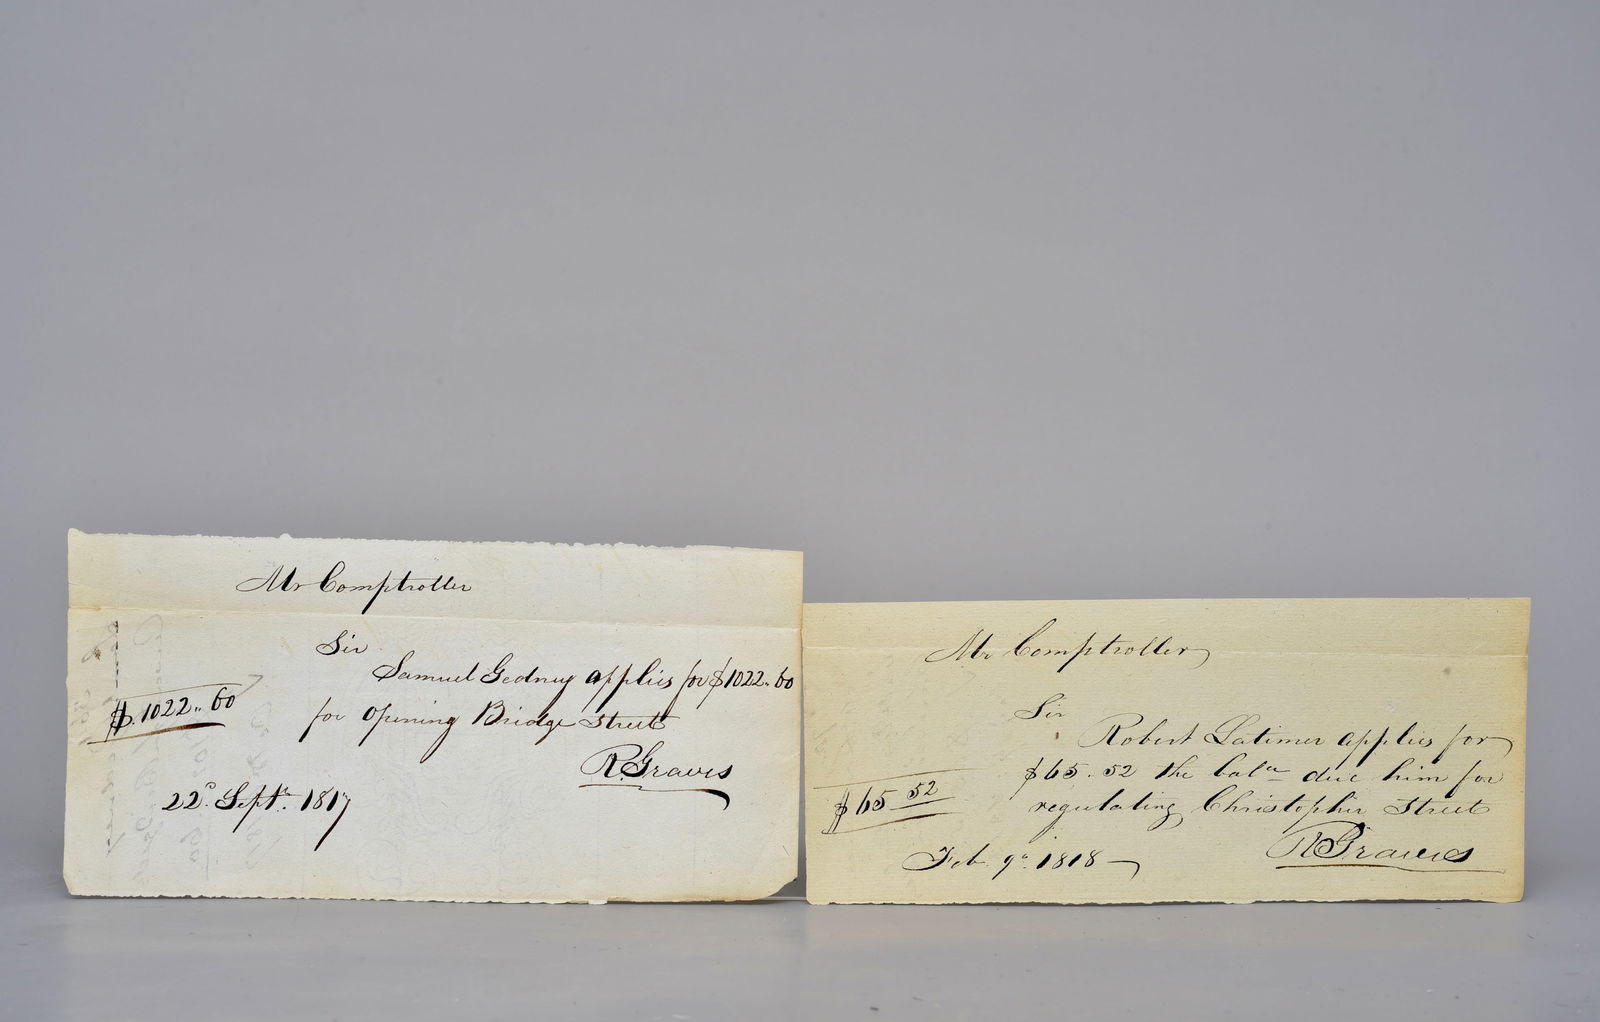 Mr Comptroller
Sir
Samuel Gedney applies for $1022.. 60
$. 1022.. 60
for opening Bridge Street
R. Graves
22d. Septr. 1817
Mr Comptroller
Sir
Robert Latimer applies for
$65. 52 the balce due him for
$65 52
regulating Christopher Street
R Graves
Feb. 9th 1818